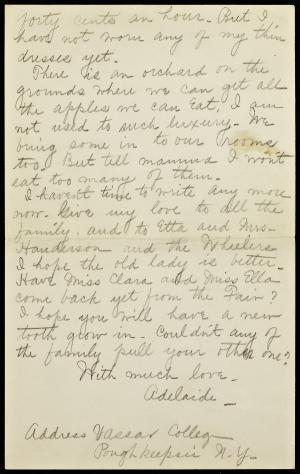 forty cents an hour. But I
have not worn any of my thin
dresses yet.
There is an orchard on the
grounds where we can get all
the apples we can eat, I am
not used to such luxury. We
bring some in to our rooms
too. But tell mamma I won't
eat too many of them.
I haven't time to write any more
now. Give my love to all the
family, and to Etta and Mrs-
Hauderson and the Wheelers
I hope the old lady is better-
Have Miss Clara and Miss Ella
come back yet from the Fair?
I hope you will have a new
tooth grow in. Couldn't any of
the family pull your other one?
With much love-
Adelaide-
Address Vassar College
Poughkeepsie N.Y.